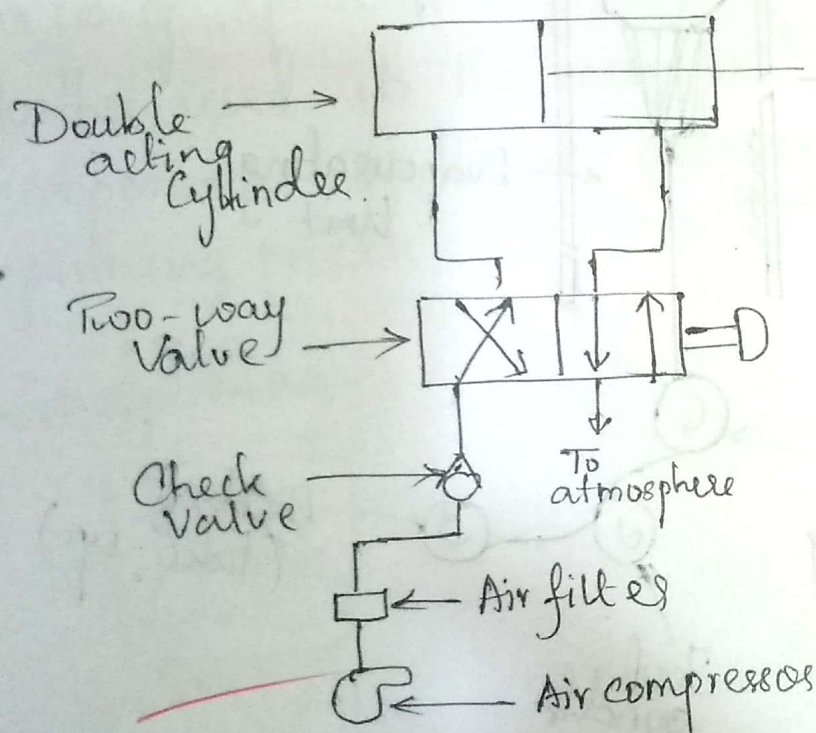 Double
acting
Cylinder.
Two-way
Valve
Check
Valve
To
atmosphere
Air filter
Air compressor